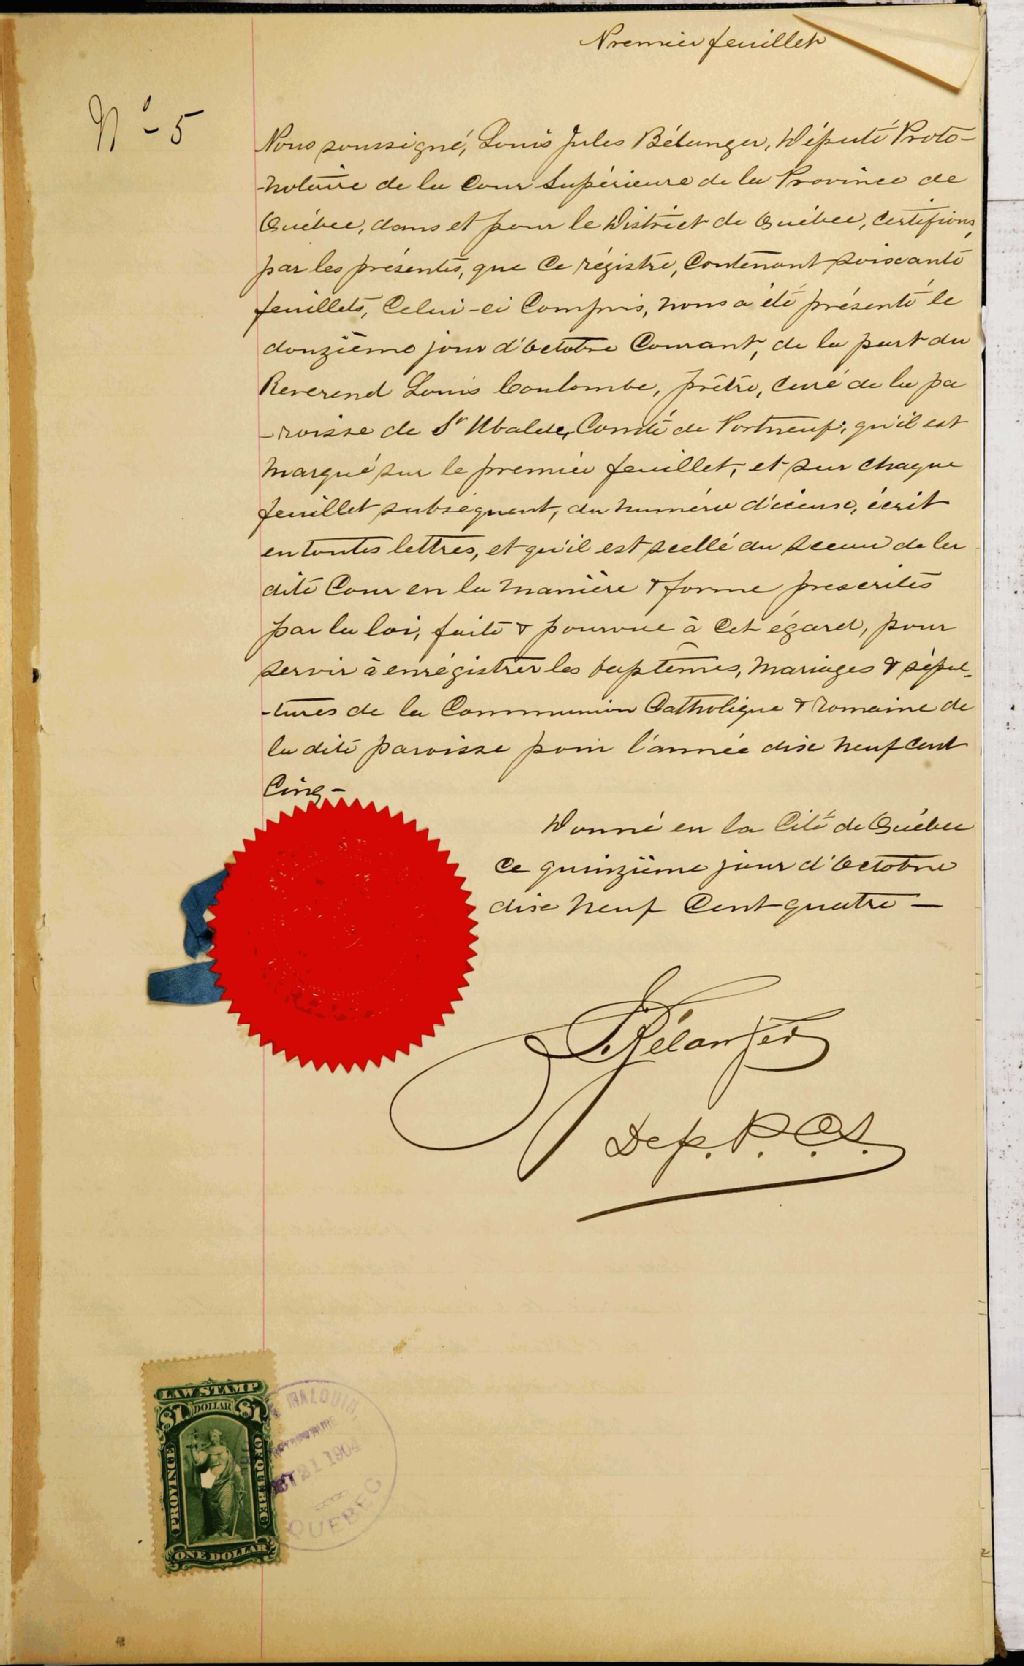 Premier feuillet
No - 5
Nous soussigné, Louis Jules Bélanger, Député Proto-
-notaire de la Cour Supérieure de la Province de
Québec, dans et pour le District de Québec, certifions,
par les présentés, que ce régistre, contenant soixante
feuillets, Celui-ci Compris, nous a été présenté le
douzième jour d'Octobre Courant, de la part du
Reverend Louis Coulombe, prêtre, curé de la pa
-roisse de St Ubalde, Comté de Portneuf; qu'il est
marqué sur le premier feuillet, et sur chaque
feuillet subséquent, du numéro d'icieux, écrit
en toutes lettres, et qu'il est scellé du sceau de la
dite Cour en la manière & forme prescrites
par la loi, faite & pourvue à cet égard, pour
servir à enrégistrer les baptêmes, mariages & sépul-
-tures de la Communion Catholique & romaine de
la dite paroisse pour l'année dix neuf cent
Cinq -
Donné en la Cité de Québec
ce quinzième jour d'Octobre
dix neuf Cent quatre -
J. Bélanger
Dep. P. C. S.
LAW STAMP
$1 DOLLAR $1
PROVINCE OF QUEBEC
ONE DOLLAR
MALOUIN,
OCT 21 1904
QUEBEC